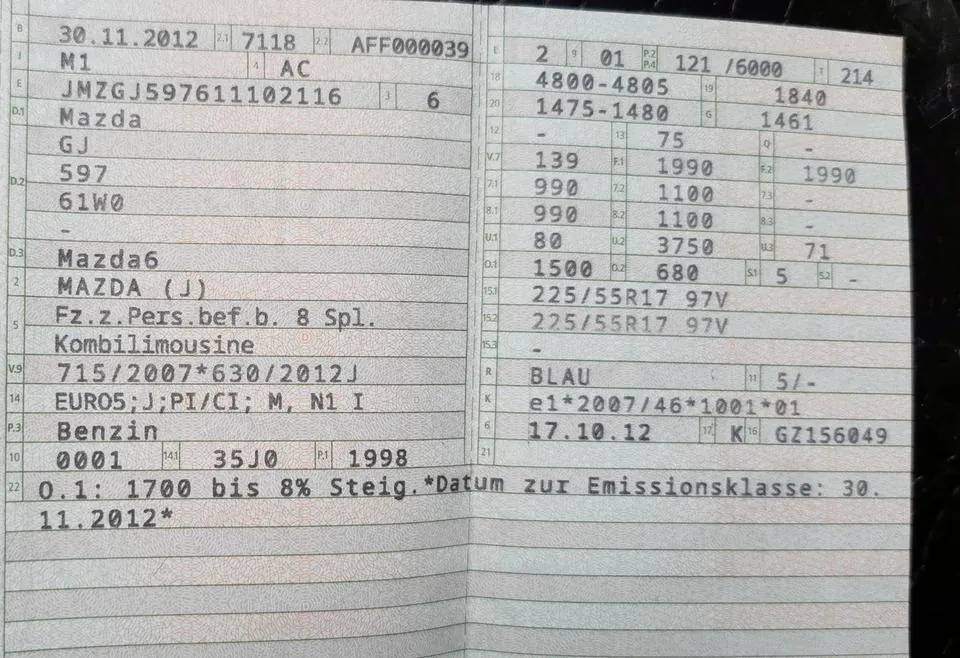 B 30.11.2012 2.1 7118 2.2 AFF000039
J M1 4 AC
E JMZGJ597611102116 3 6
D.1 Mazda
D.2 GJ
597
61W0
-
D.3 Mazda6
2 MAZDA (J)
5 Fz.z.Pers.bef.b. 8 Spl.
Kombilimousine
V.9 715/2007*630/2012J
14 EURO5;J;PI/CI; M, N1 I
P.3 Benzin
10 0001 14.1 35J0 P.1 1998
L 2 9 01 P.2 P.4 121 /6000 T 214
18 4800-4805 19 1840
20 1475-1480 G 1461
12 - 13 75 Q -
V.7 139 F.1 1990 F.2 1990
7.1 990 7.2 1100 7.3 -
8.1 990 8.2 1100 8.3 -
U.1 80 U.2 3750 U.3 71
O.1 1500 O.2 680 S.1 5 S.2 -
15.1 225/55R17 97V
15.2 225/55R17 97V
15.3 -
R BLAU 11 5/-
K e1*2007/46*1001*01
6 17.10.12 17 K 16 GZ156049
21
22 O.1: 1700 bis 8% Steig.*Datum zur Emissionsklasse: 30.
11.2012*